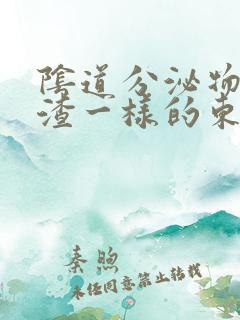 陰道分泌物
渣一樣的東
秦煦
未经同意禁止转载